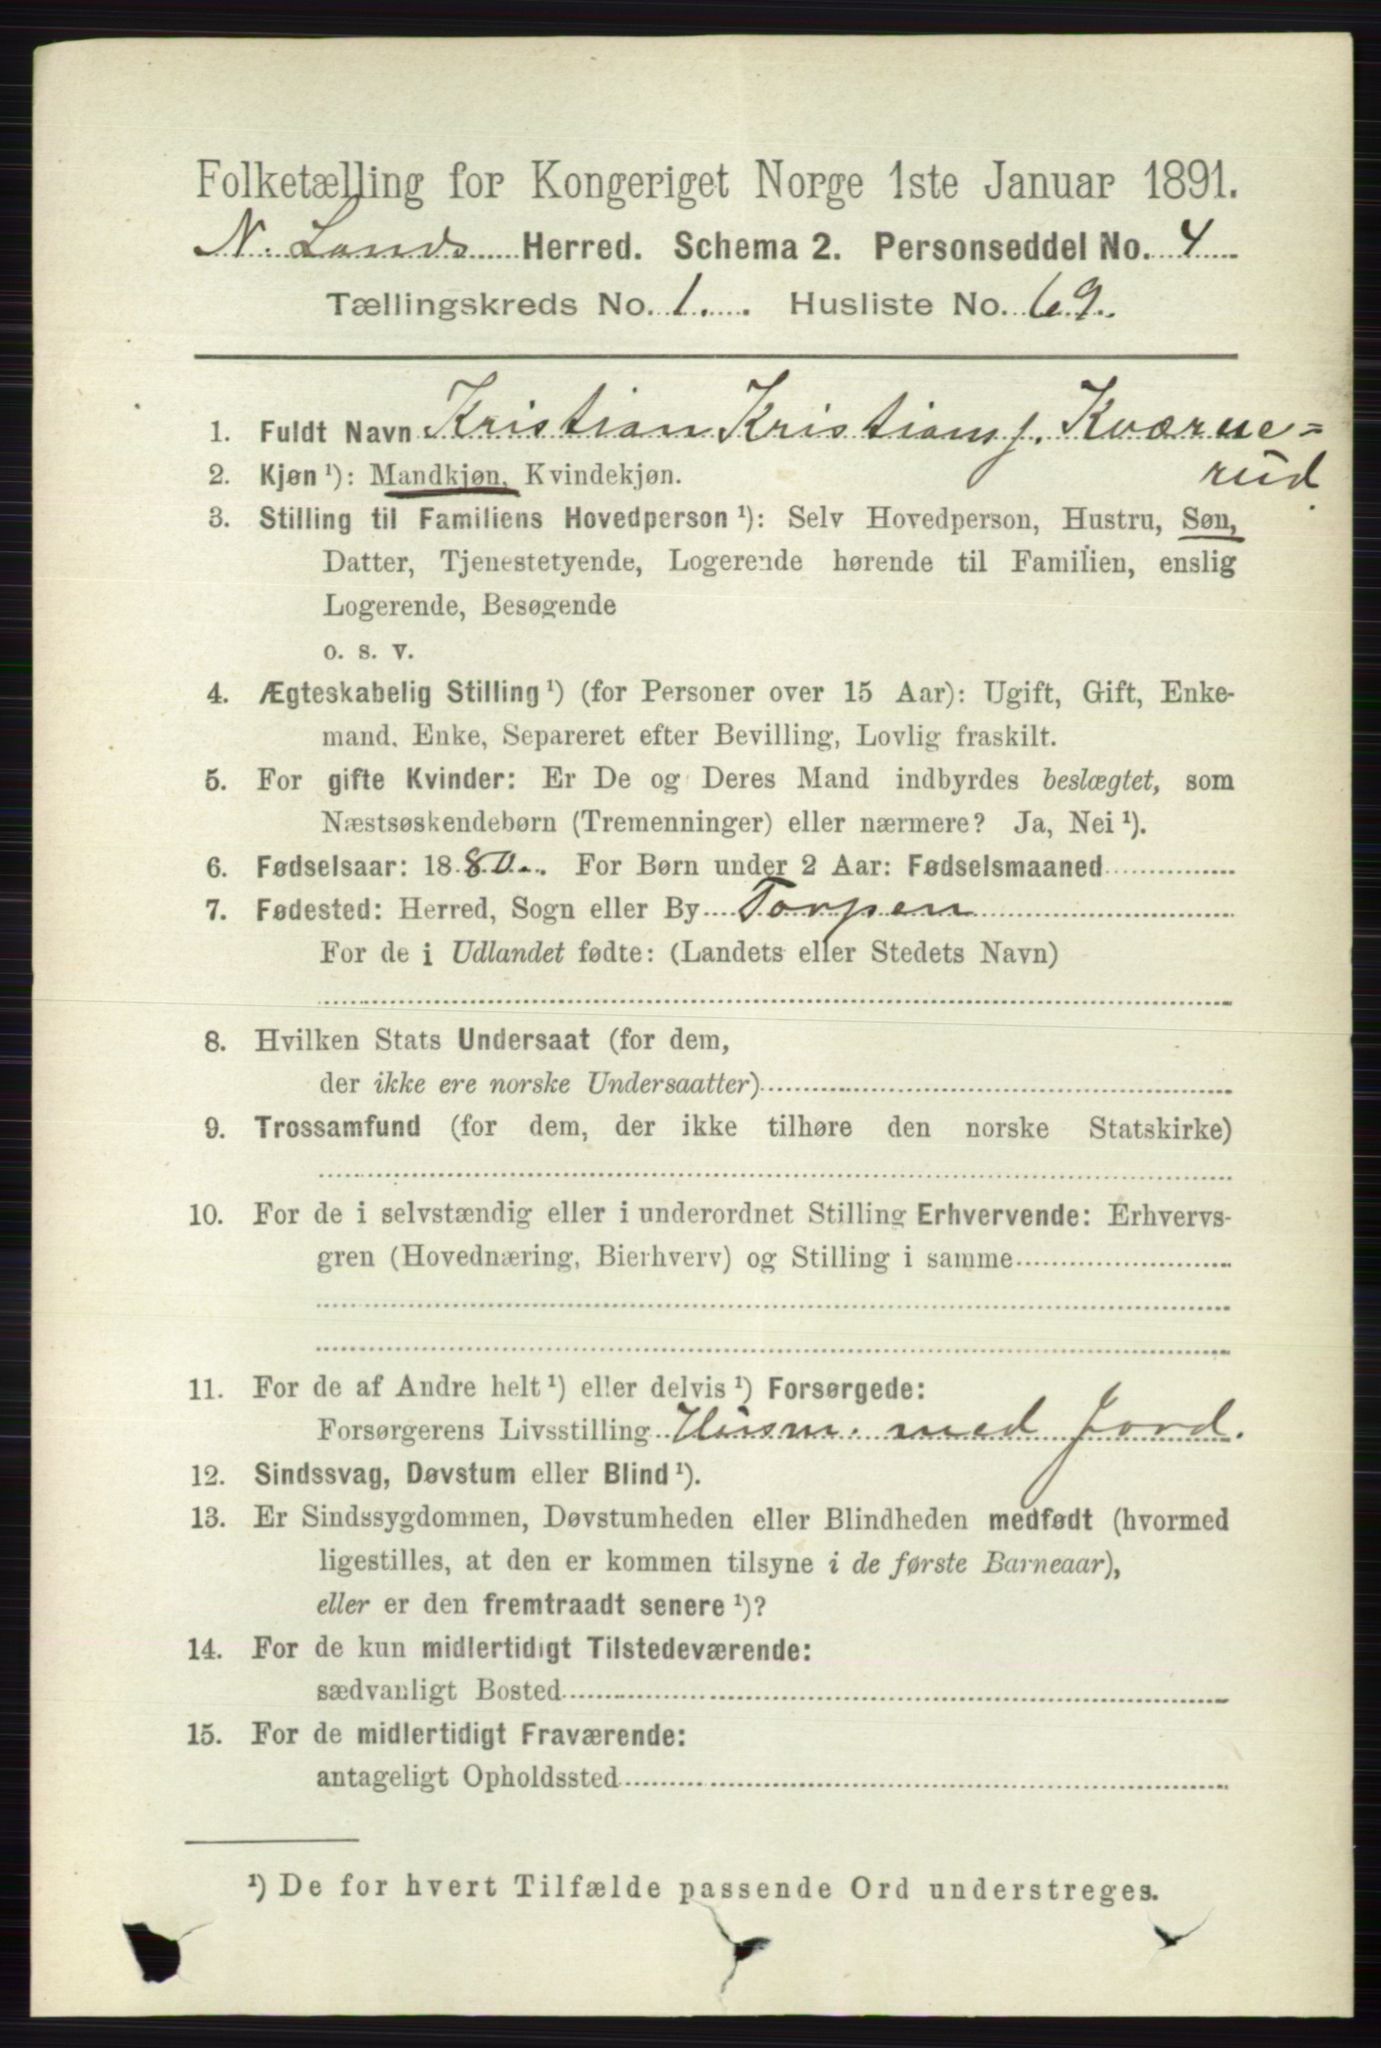 Folketælling for Kongeriget Norge 1ste Januar 1891.
N. Lands Herred. Schema 2. Personseddel No. 4
Tællingskreds No. 1. Husliste No. 69.
1. Fuldt Navn Kristian Kristians. Kværne=
rud
2. Kjøn ¹): Mandkjøn, Kvindekjøn.
3. Stilling til Familiens Hovedperson ¹): Selv Hovedperson, Hustru, Søn,
Datter, Tjenestetyende, Logerende hørende til Familien, enslig
Logerende, Besøgende
o. s. v.
4. Ægteskabelig Stilling ¹) (for Personer over 15 Aar): Ugift, Gift, Enke-
mand, Enke, Separeret efter Bevilling, Lovlig fraskilt.
5. For gifte Kvinder: Er De og Deres Mand indbyrdes beslægtet, som
Næstsøskendebørn (Tremenninger) eller nærmere? Ja, Nei ¹).
6. Fødselsaar: 1880. For Børn under 2 Aar: Fødselsmaaned
7. Fødested: Herred, Sogn eller By Torpen
For de i Udlandet fødte: (Landets eller Stedets Navn)
8. Hvilken Stats Undersaat (for dem,
der ikke ere norske Undersaatter)
9. Trossamfund (for dem, der ikke tilhøre den norske Statskirke)
10. For de i selvstændig eller i underordnet Stilling Erhvervende: Erhvervs-
gren (Hovednæring, Bierhverv) og Stilling i samme
11. For de af Andre helt ¹) eller delvis ¹) Forsørgede:
Forsørgerens Livsstilling Husm. med Jord.
12. Sindssvag, Døvstum eller Blind ¹).
13. Er Sindssygdommen, Døvstumheden eller Blindheden medfødt (hvormed
ligestilles, at den er kommen tilsyne i de første Barneaar),
eller er den fremtraadt senere ¹)?
14. For de kun midlertidigt Tilstedeværende:
sædvanligt Bosted
15. For de midlertidigt Fraværende:
antageligt Opholdssted
¹) De for hvert Tilfælde passende Ord understreges.